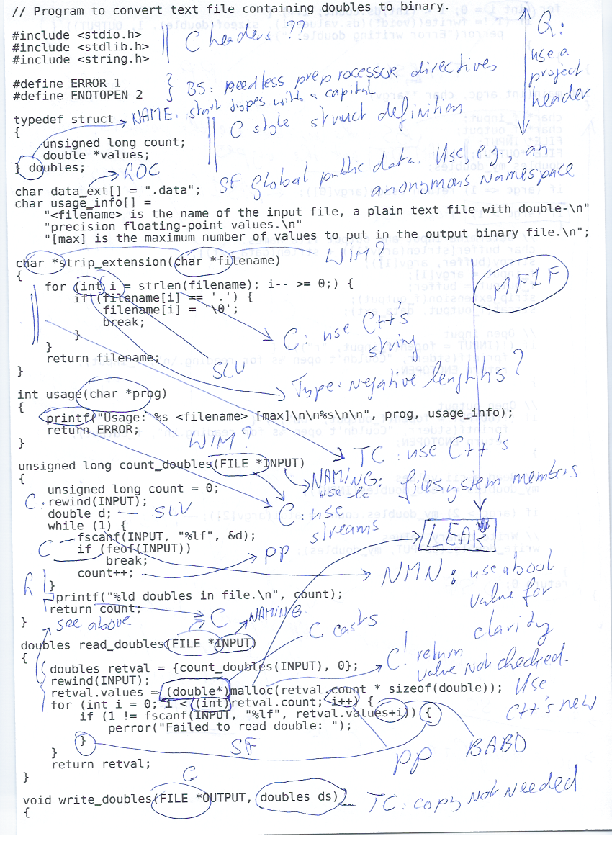 // Program to convert text file containing doubles to binary.
#include <stdio.h>
#include <stdlib.h>
#include <string.h>
C headers ??
Q: use a project header
#define ERROR 1
#define ENOTOPEN 2
BS: needless preprocessor directives
NAME: start types with a capital
typedef struct
{
C style struct definition
unsigned long count;
double *values;
} doubles;
ROC
SF Global public data. Use, e.g., an
anonymous namespace
char data_ext[] = ".data";
char usage_info[] =
"<filename> is the name of the input file, a plain text file with double-\n"
"precision floating-point values.\n"
"[max] is the maximum number of values to put in the output binary file.\n";
WIM?
char *strip_extension(char *filename)
{
MFIF
for (int i = strlen(filename); i-- >= 0;) {
if (filename[i] == '.') {
filename[i] = '\0';
break;
}
}
return filename;
}
C: use C++'s
string
SLV
Type: negative lengths?
int usage(char *prog)
{
printf("Usage: %s <filename> [max]\n\n%s\n\n", prog, usage_info);
return ERROR;
}
WIM?
TC: use C++'s
filesystem members
unsigned long count_doubles(FILE *INPUT)
{
NAMING:
use lc
unsigned long count = 0;
C
rewind(INPUT);
double d;
SLV
C: use
streams
LEAK
while (1) {
fscanf(INPUT, "%lf", &d);
C
if (feof(INPUT))
break;
PP
count++;
NMN: use a bool
value for
clarity
}
printf("%ld doubles in file.\n", count);
return count;
}
see above
C
NAMING
C casts
doubles read_doubles(FILE *INPUT)
{
C! return
value not checked.
Use
C++'s new
doubles retval = {count_doubles(INPUT), 0};
rewind(INPUT);
retval.values = (double*)malloc(retval.count * sizeof(double));
for (int i = 0; i < (int)retval.count; i++) {
if (1 != fscanf(INPUT, "%lf", retval.values+i)) {
perror("Failed to read double: ");
}
}
return retval;
}
SF
PP
BABO
C
void write_doubles(FILE *OUTPUT, doubles ds)
{
TC: copy not needed